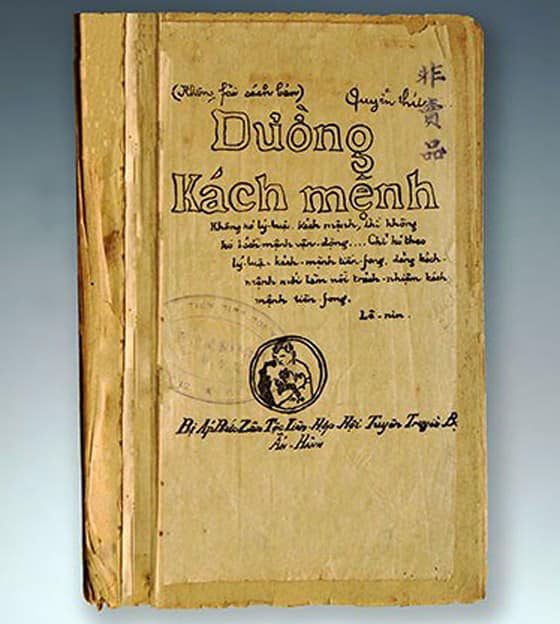 (Không fải sách bán)
Quyển thứ
非賣品
Đường
Kách mệnh
Không kó lý-luận kách mệnh, thì không
kó kách mệnh vận-động.... Chỉ kó theo
lý-luận kách-mệnh tiền-fong, đảng kách-
mệnh mới làm nổi trách-nhiệm kách
mệnh tiền-fong.
Lê-nin.
Bị Áp Bức Zân Tộc Liên Hợp Hội Tuyên Truyền Bộ
Ấn-Hành